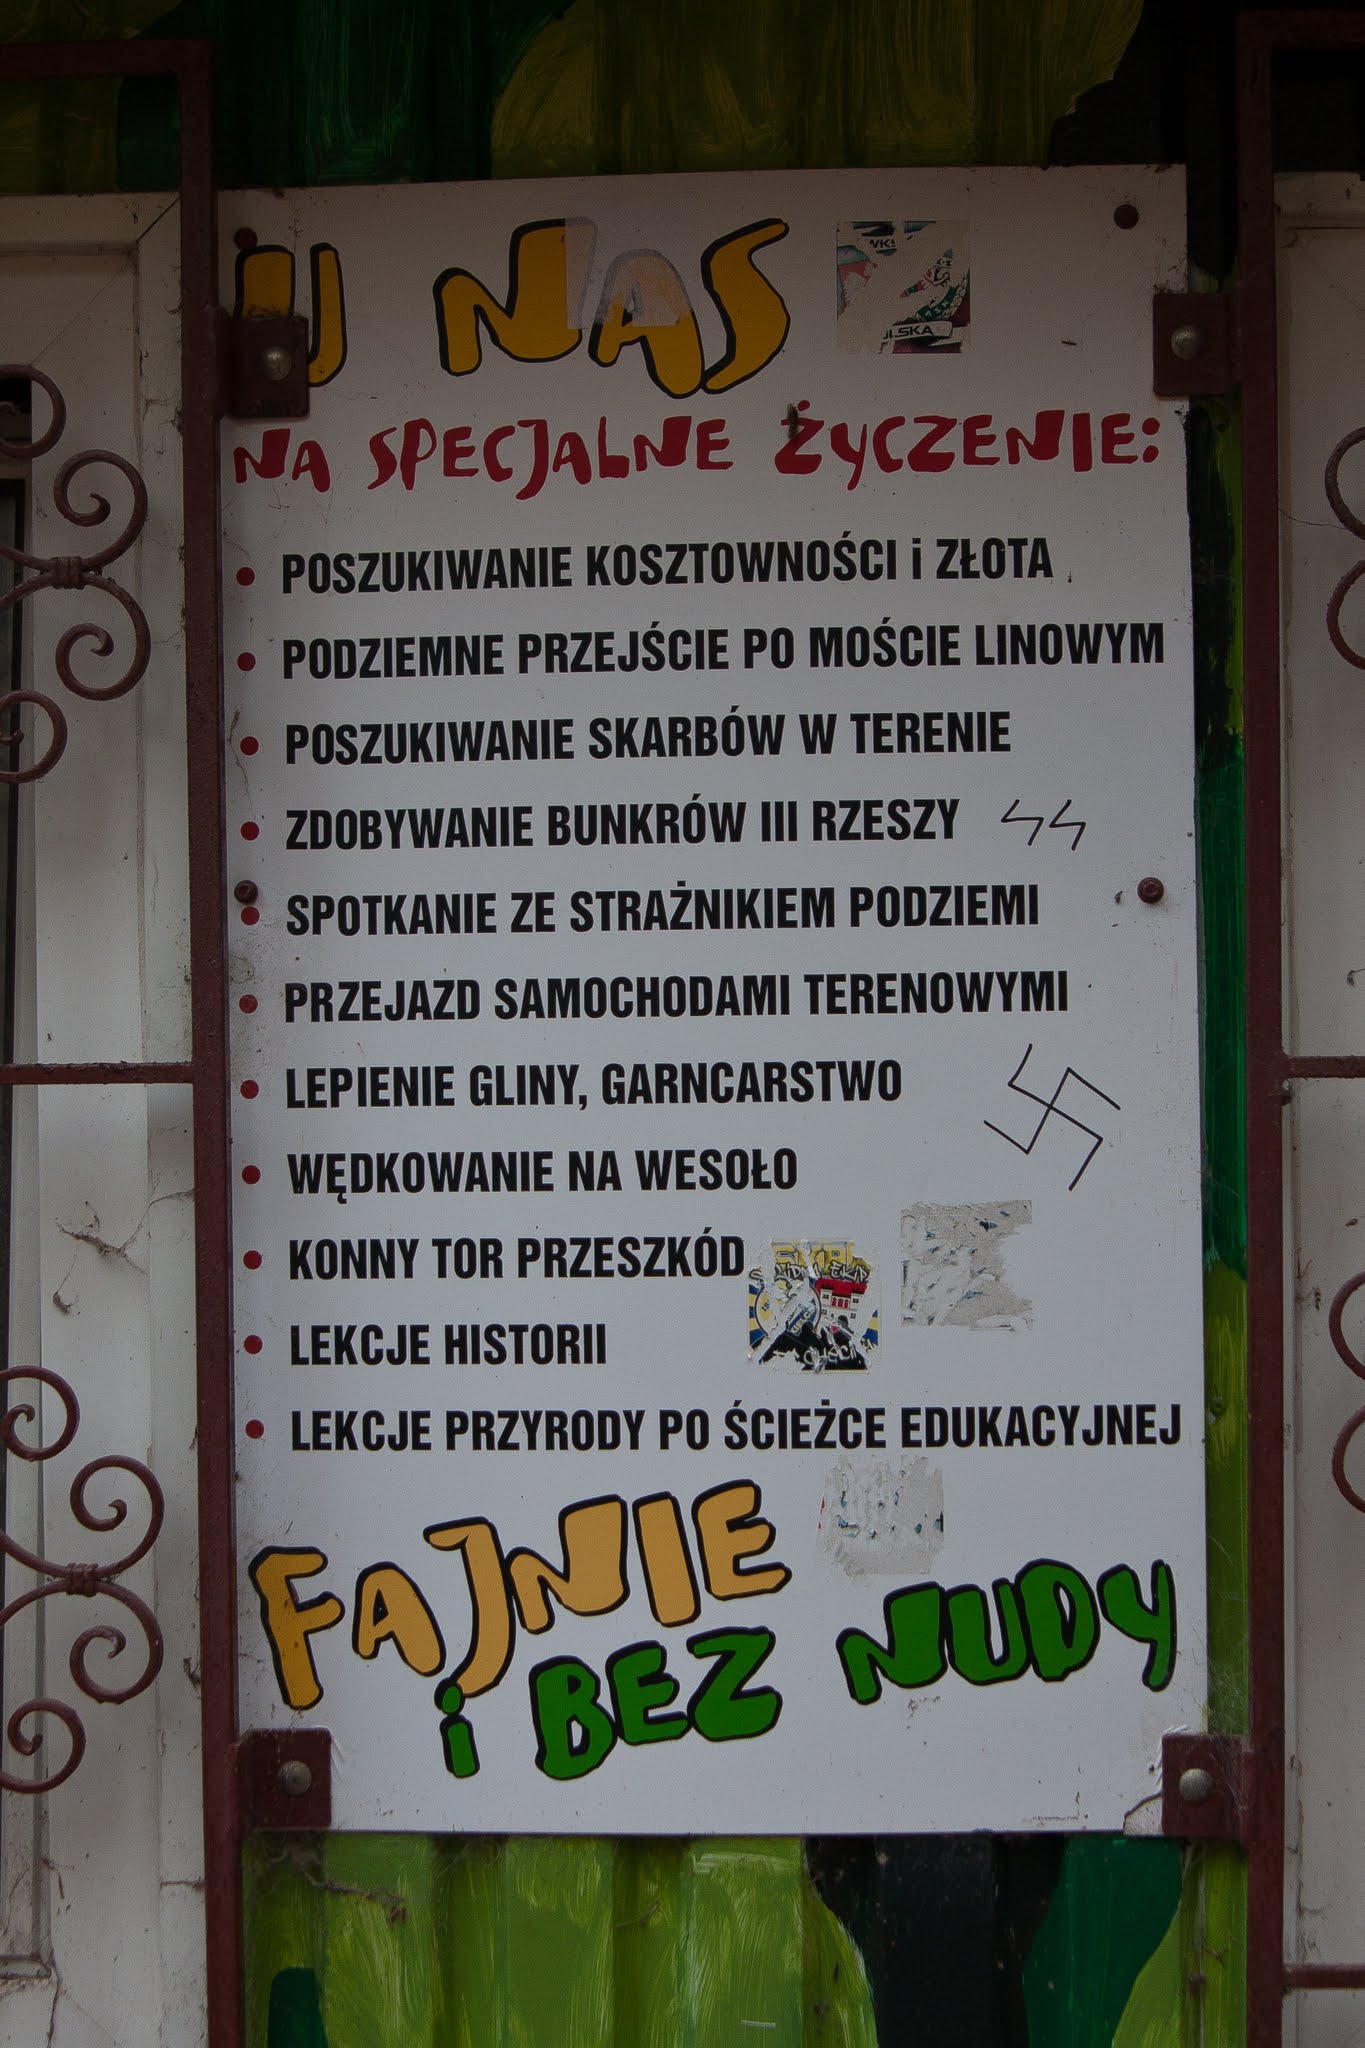 U NAS
NA SPECJALNE ŻYCZENIE:
POSZUKIWANIE KOSZTOWNOŚCI i ZŁOTA
PODZIEMNE PRZEJŚCIE PO MOŚCIE LINOWYM
POSZUKIWANIE SKARBÓW W TERENIE
ZDOBYWANIE BUNKRÓW III RZESZY
SPOTKANIE ZE STRAŻNIKIEM PODZIEMI
PRZEJAZD SAMOCHODAMI TERENOWYMI
LEPIENIE GLINY, GARNCARSTWO
WĘDKOWANIE NA WESOŁO
KONNY TOR PRZESZKÓD
LEKCJE HISTORII
LEKCJE PRZYRODY PO ŚCIEŻCE EDUKACYJNEJ
FAJNIE
i BEZ NUDY